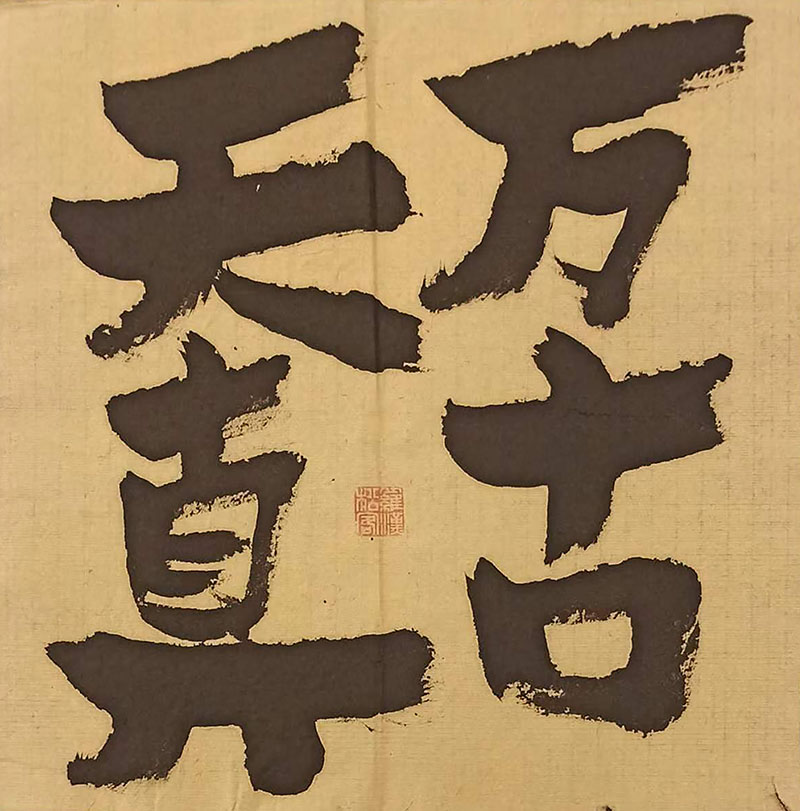 万古
天真